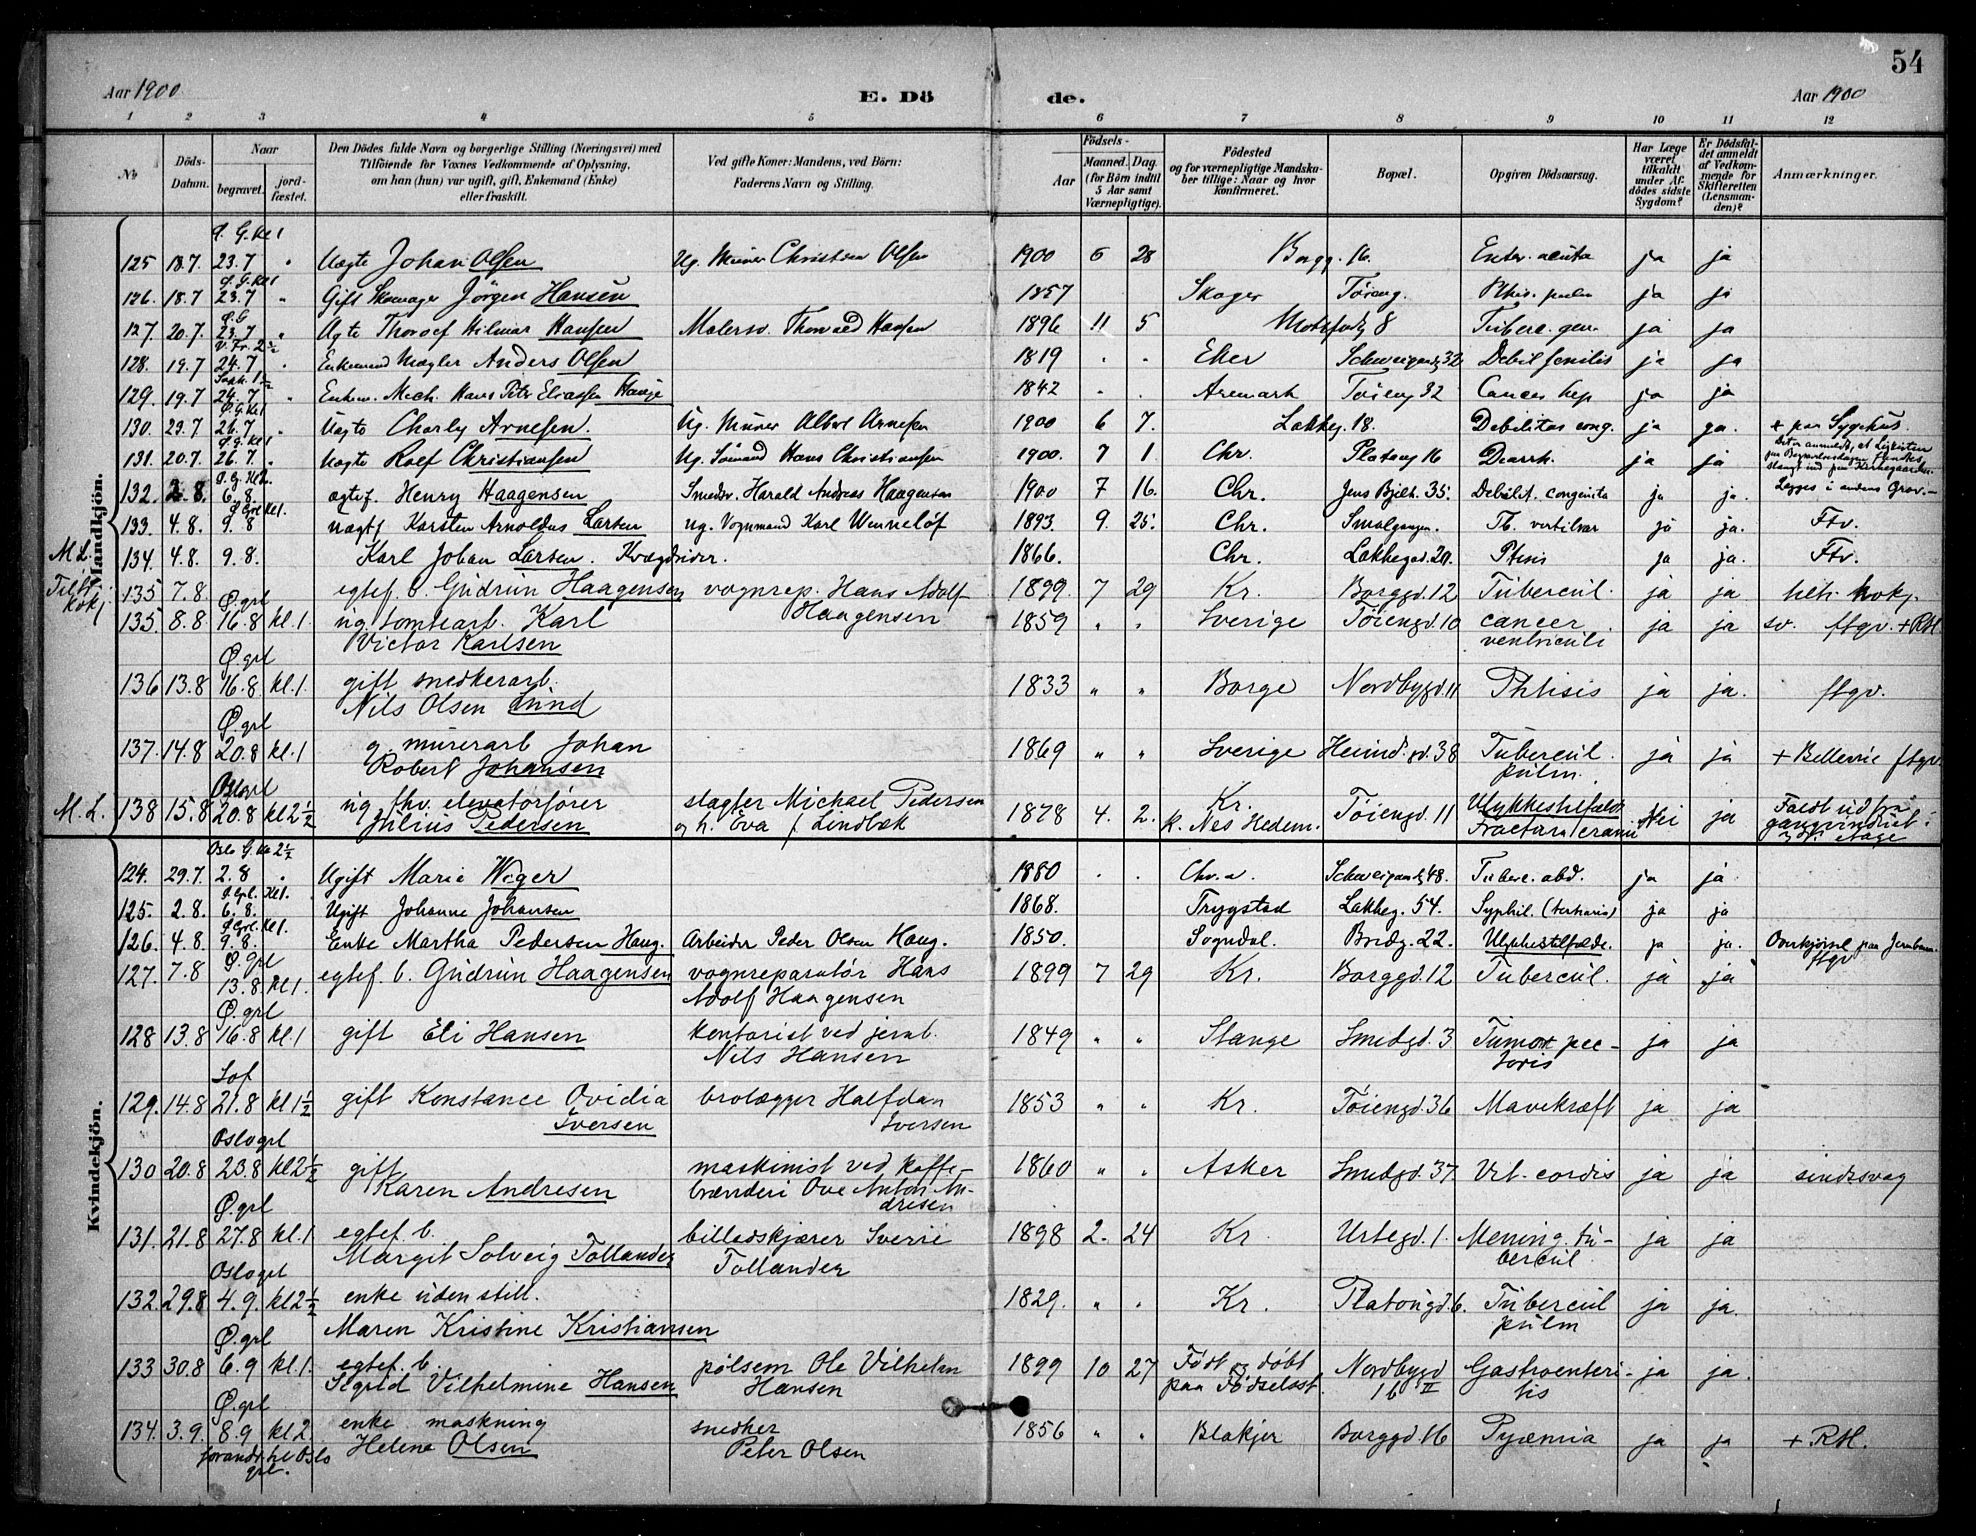 54
Aar 1900 E. Dö de. Aar 1900
1 2 3 4 5 6 7 8 9 10 11 12
No
Döds-Datum.
Naar
begravet.
jord-fæstet.
Den Dödes fulde Navn og borgerlige Stilling (Næringsvei) med
Tilföiende for Voxnes Vedkommende af Oplysning,
om han (hun) var ugift, gift, Enkemand (Enke)
eller fraskilt.
Ved gifte Koner: Mandens, ved Börn:
Faderens Navn og Stilling.
Födsels-
Aar
Maaned. Dag.
(for Börn indtil
5 Aar samt
Værnepligtige).
Födested
og for værnepligtige Mandska-
ber tillige: Naar og hvor
Konfirmeret.
Bopæl.
Opgiven Dödsaarsag.
Har Læge
været
tilkaldt
under Af-
dödes sidste
Sygdom?
Er Dödsfal-
det anmeldt
af Vedkom-
mende for
Skifteretten
(Lensman-
den)?
Anmærkninger.
Mandkjön.
Ö. G. Kl 1
125 18.7. 23.7 " Uægte Johan Olsen Ug. Murer Christian Olsen 1900 6 28 Borgg. 16. Enter. acuta ja ja
Ö. G. Kl 1
126. 18.7 23.7 " Gift Skomager Jörgen Hansen 1857 Skoger Töieng. Phtis. pulm ja ja
Ö. G
127. 20.7. 23.7 " Ægte Thorolf Hilmar Hansen Malersv. Thorvald Hansen 1896 11 5 Motzfeldtg 8 Tuberc. gen. ja ja
V. Fr. 2½
128. 19.7 24.7 " Enkemand Mægler Anders Olsen 1819 . . Eker Schweigaardsg 32 Debil senilis ja ja
Soph. 1½
129. 19.7 24.7 " Enkem. Mech. Hans Petr Eliassen Hauge 1842 . . Aremark Töieng 32 Cancer hep ja ja
Ö. G. Kl 1
130. 23.7 26.7 " Uægte Charly Arnesen. Ug. Murer Albert Arnesen 1900 6 7. Lakkeg. 18. Debilitas cong. ja ja. + paa Sygehus.
Ö. G. Kl 1
131. 20.7. 26.7. " Uægte Rolf Christiansen Ug. Sömand Hans Christiansen 1900. 7 1 Chr. Platoug 16 Diarrh. ja ja
Ö. G. Kl 2.
132. 2.8. 6.8. ægtef. Henry Haagensen Smedsv. Harald Andreas Haagensen 1900 7 16. Chr. Jens Bjelk. 35. Debilit. congenita ja ja. Lægges i anden Grav.
Ö. Grl. Kl 1.
133. 4.8. 9.8 uægtf Karsten Arnoldus Larsen ug. Vognmand Karl Wennelöf 1893. 9. 25. Chr. Smalgangen. Tb. vertebrar ja ja. Ftv.
M. L. 134. 4.8. 9.8. Karl Johan Larsen. Kvægdriver. 1866. Chr. Lakkegd. 20. Ptisis ja ja. Ftv.
135 7.8. egtef. b. Gudrun Haagensen vognrep. Hans Adolf 1899. 7 29 Kr. Borggd. 12 Tubercul. ja ja
Haagensen
Ö. grl
135. 8.8 16.8 kl. 1. ug. tomtearb. Karl 1859 " " Sverige Töiengd. 10 cancer ja ja sv. ftgv. + RH
Victor Karlsen ventriculi
Ö. grl
136 13.8 16.8 kl. 1. gift snedkerarb. 1833 " " Borge Nordbygd. 11 Phtisis ja ja. ftgv.
Nils Olsen Lund
Ö. grl
137. 14.8 20.8 kl. 1 g. murerarb Johan 1869 " " Sverige Heimd. gd. 38 Tubercul. ja ja + Bellevue ftgv.
Robert Johansen pulm.
Oslogrl
M. L. 138 15.8 20.8 kl 2½ ug. fhv. elevatorförer slagter Michael Pedersen 1878 4. 2. Kr. Töiengd. 11 Ulykkestilfælde Nei ja Faldt ud fra
Julius Pedersen og h. Eva f. Lindbæk k. Nes Hedem. Fractura cranii gangvinduet i
3dje etage
Kvindekjön.
Oslo G. Kl 2½
124. 29.7. 2.8 " Ugift Marie Weger 1880 . . Chr.a. Schweigaardsg 48. Tuberc. abd. ja ja.
Ö. Grl. Kl 1.
125. 2.8. 6.8. Ugift Johanne Johansen 1868. Trygstad Lakkeg. 54. Syphil. (tertiaria) ja ja
Ö. Grl. Kl 1.
126. 4.8. 9.8. Enke Martha Pedersen Haug. Arbeider Peder Olsen Haug. 1850. Sogndal. Bredg. 22. Ulykkestilfælde. ja ja. Overkjörsel paa Jernbanen
ftgv
Ö. grl
127. 7.8 13.8 Kl 1. egtef. b. Gudrun Haagensen vognreparatör Hans 1899 7 29 Kr. Borggd. 12 Tubercul. ja ja
Adolf Haagensen
Ö. grl
128 13.8 16.8 kl. 1 gift Eli Hansen kontorist ved jernb. 1849 " " Stange Smedgd. 3 Tumor pec- ja ja
Nils Hansen toris
Sof
129. 14.8 21.8 kl 1½ gift Konstance Ovidia brolægger Halfdan 1853 " " Kr. Töiengd. 36 Mavekræft ja ja
Iversen Iversen
Oslogrl
130 20.8 23.8 kl 2½ gift maskinist ved kaffe- 1860 " " Asker Smedgd. 37. Vit. cordis ja ja sindssvag
Karen Andresen brænderi Ove Anton An-
dresen
Ö. grl
131. 21.8 27.8 kl. 1 egtef. b. billedskjærer Sverre 1898 2. 24 Kr. Urtegd. 1. Mening. tu- ja ja
Margit Solveig Tollander Tollander bercul.
Oslogrl
132. 29.8 4.9. kl 2½ enke uden still. 1829. " " Kr. Platougd. 6. Tubercul ja ja.
Maren Kristine Kristiansen pulm
Ö. grl
133 30.8 6.9 kl. 1. egtef. b. pölsem Ole Vilhelm 1899 10 27 Födt og döbt Nordbygd Gastroenteri- ja ja.
Sigrid Vilhelmine Hansen Hansen paa Födselsst. 16 II tis
Ö. grl
134. 3.9. 8.9 kl 2. enke maskning snedker 1856 " " Blakjer Borggd. 16 Pyæmia ja ja + RH.
Helene Olsen Peter Olsen
forandr. til Oslo
grl.